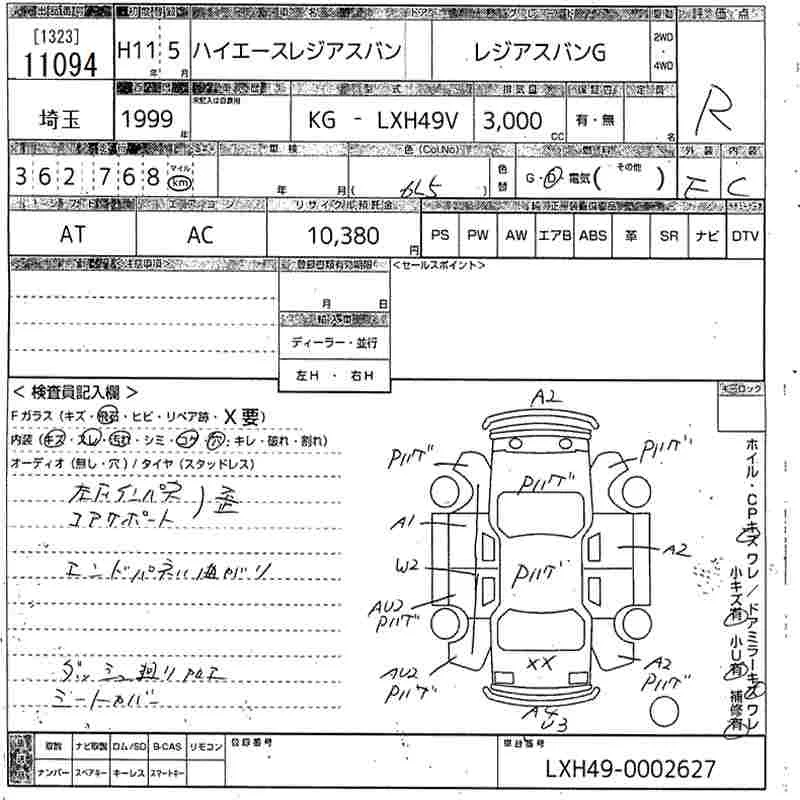 [1323]
11094
H11 5
年 月
ハイエースレジアスバン
レジアスバンG
2WD
・
4WD
評価点
R
埼玉
1999 年
未記入は自家用
型式
KG - LXH49V
排気量
3,000 CC
有・無
名
362,768
マイル
km
車検
年 月
色 (Col.No)
( 6L5 )
色替
燃料
G・D 電気( その他 )
外装
E
内装
C
AT
エアコン
AC
リサイクル預託金
10,380 円
PS PW AW エアB ABS 革 SR ナビ DTV
登録書類有効期限
月 日
輸入車
ディーラー・並行
左H ・ 右H
<セールスポイント>
< 検査員記入欄 >
Fガラス (キズ・飛石・ヒビ・リペア跡・X要)
内装 (キズ・スレ・汚れ・シミ・コゲ・穴・キレ・破れ・割れ)
オーディオ (無し・穴) / タイヤ (スタッドレス)
コアサポート
歪
エンドパネル曲がり
シートカバー
A2
Pハゲ
Pハゲ
Pハゲ
A1
A2
W2
Pハゲ
AU2
Pハゲ
AU2
Pハゲ
XX
A2
Pハゲ
A4
U3
ホイル・CPキズ ワレ / ドアミラーキズ ワレ
小キズ有 小U有 補修有
取説 ナビ取説 ロム/SD B-CAS リモコン
ナンバー スペアキー キーレス スマートキー
登録番号
車台番号
LXH49-0002627